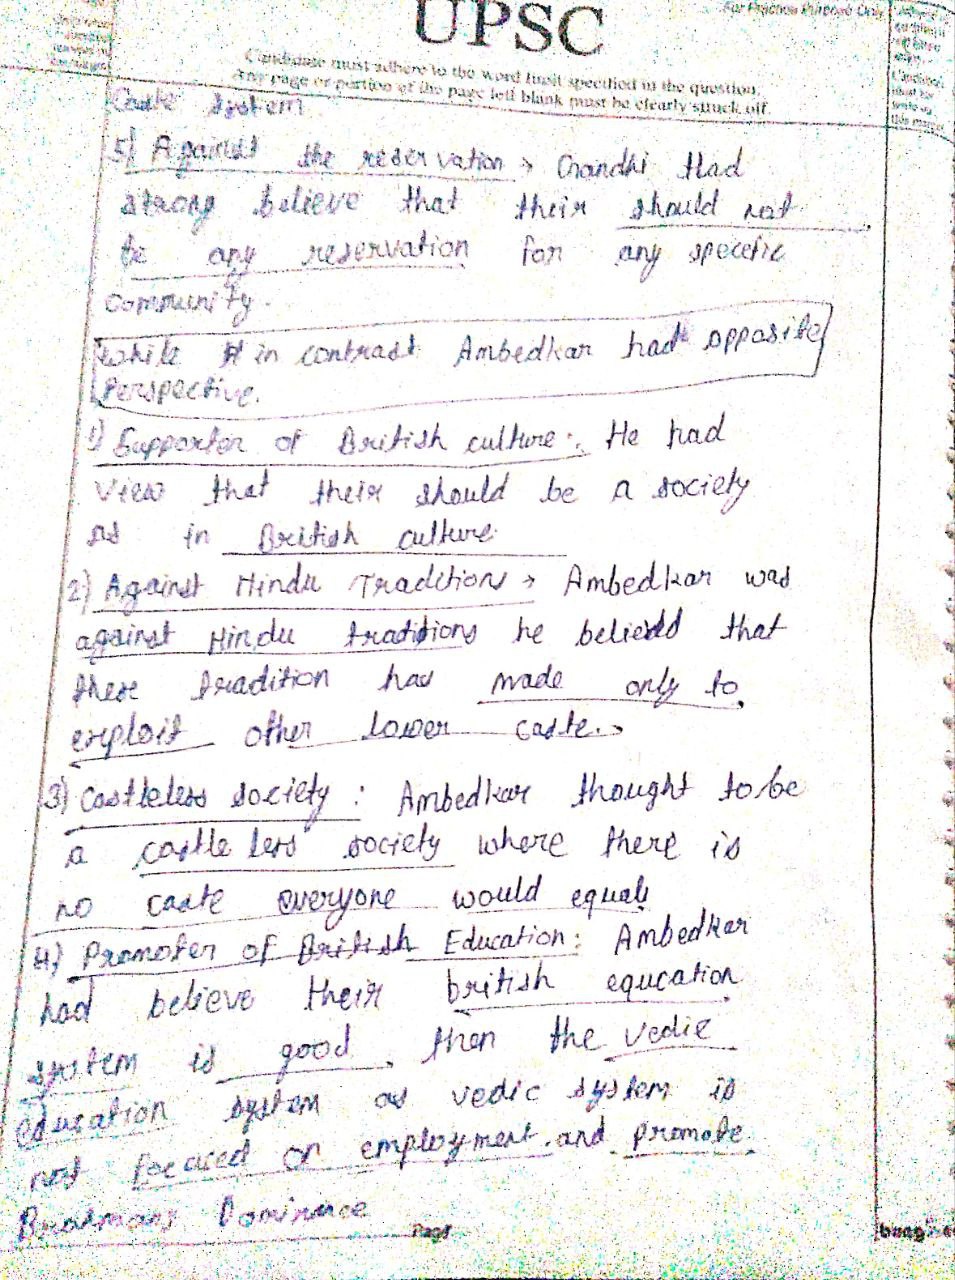 UPSC
For Practice Purpose Only
Candidate must adhere to the word limit specified in the question.
Any page or portion of the page left blank must be clearly struck off.
Caste system
5) Against the reservation → Gandhi Had
strong believe that their should not
be any reservation for any specefic
community.
while in contrast Ambedkar had opposite
Perspective.
1) Supporter of British culture: He had
view that their should be a society
as in British culture
2) Against Hindu Tradition → Ambedkar was
against Hindu traditions he believed that
these tradition has made only to
exploit other lower caste.
3) Castleless society: Ambedkar thought to be
a castle less society where there is
no caste everyone would equals
4) Promoter of British Education: Ambedkar
had believe their british equcation
system is good then the vedic
education system as vedic system is
not focused on employment and promote
Brahmans Dominance
Page